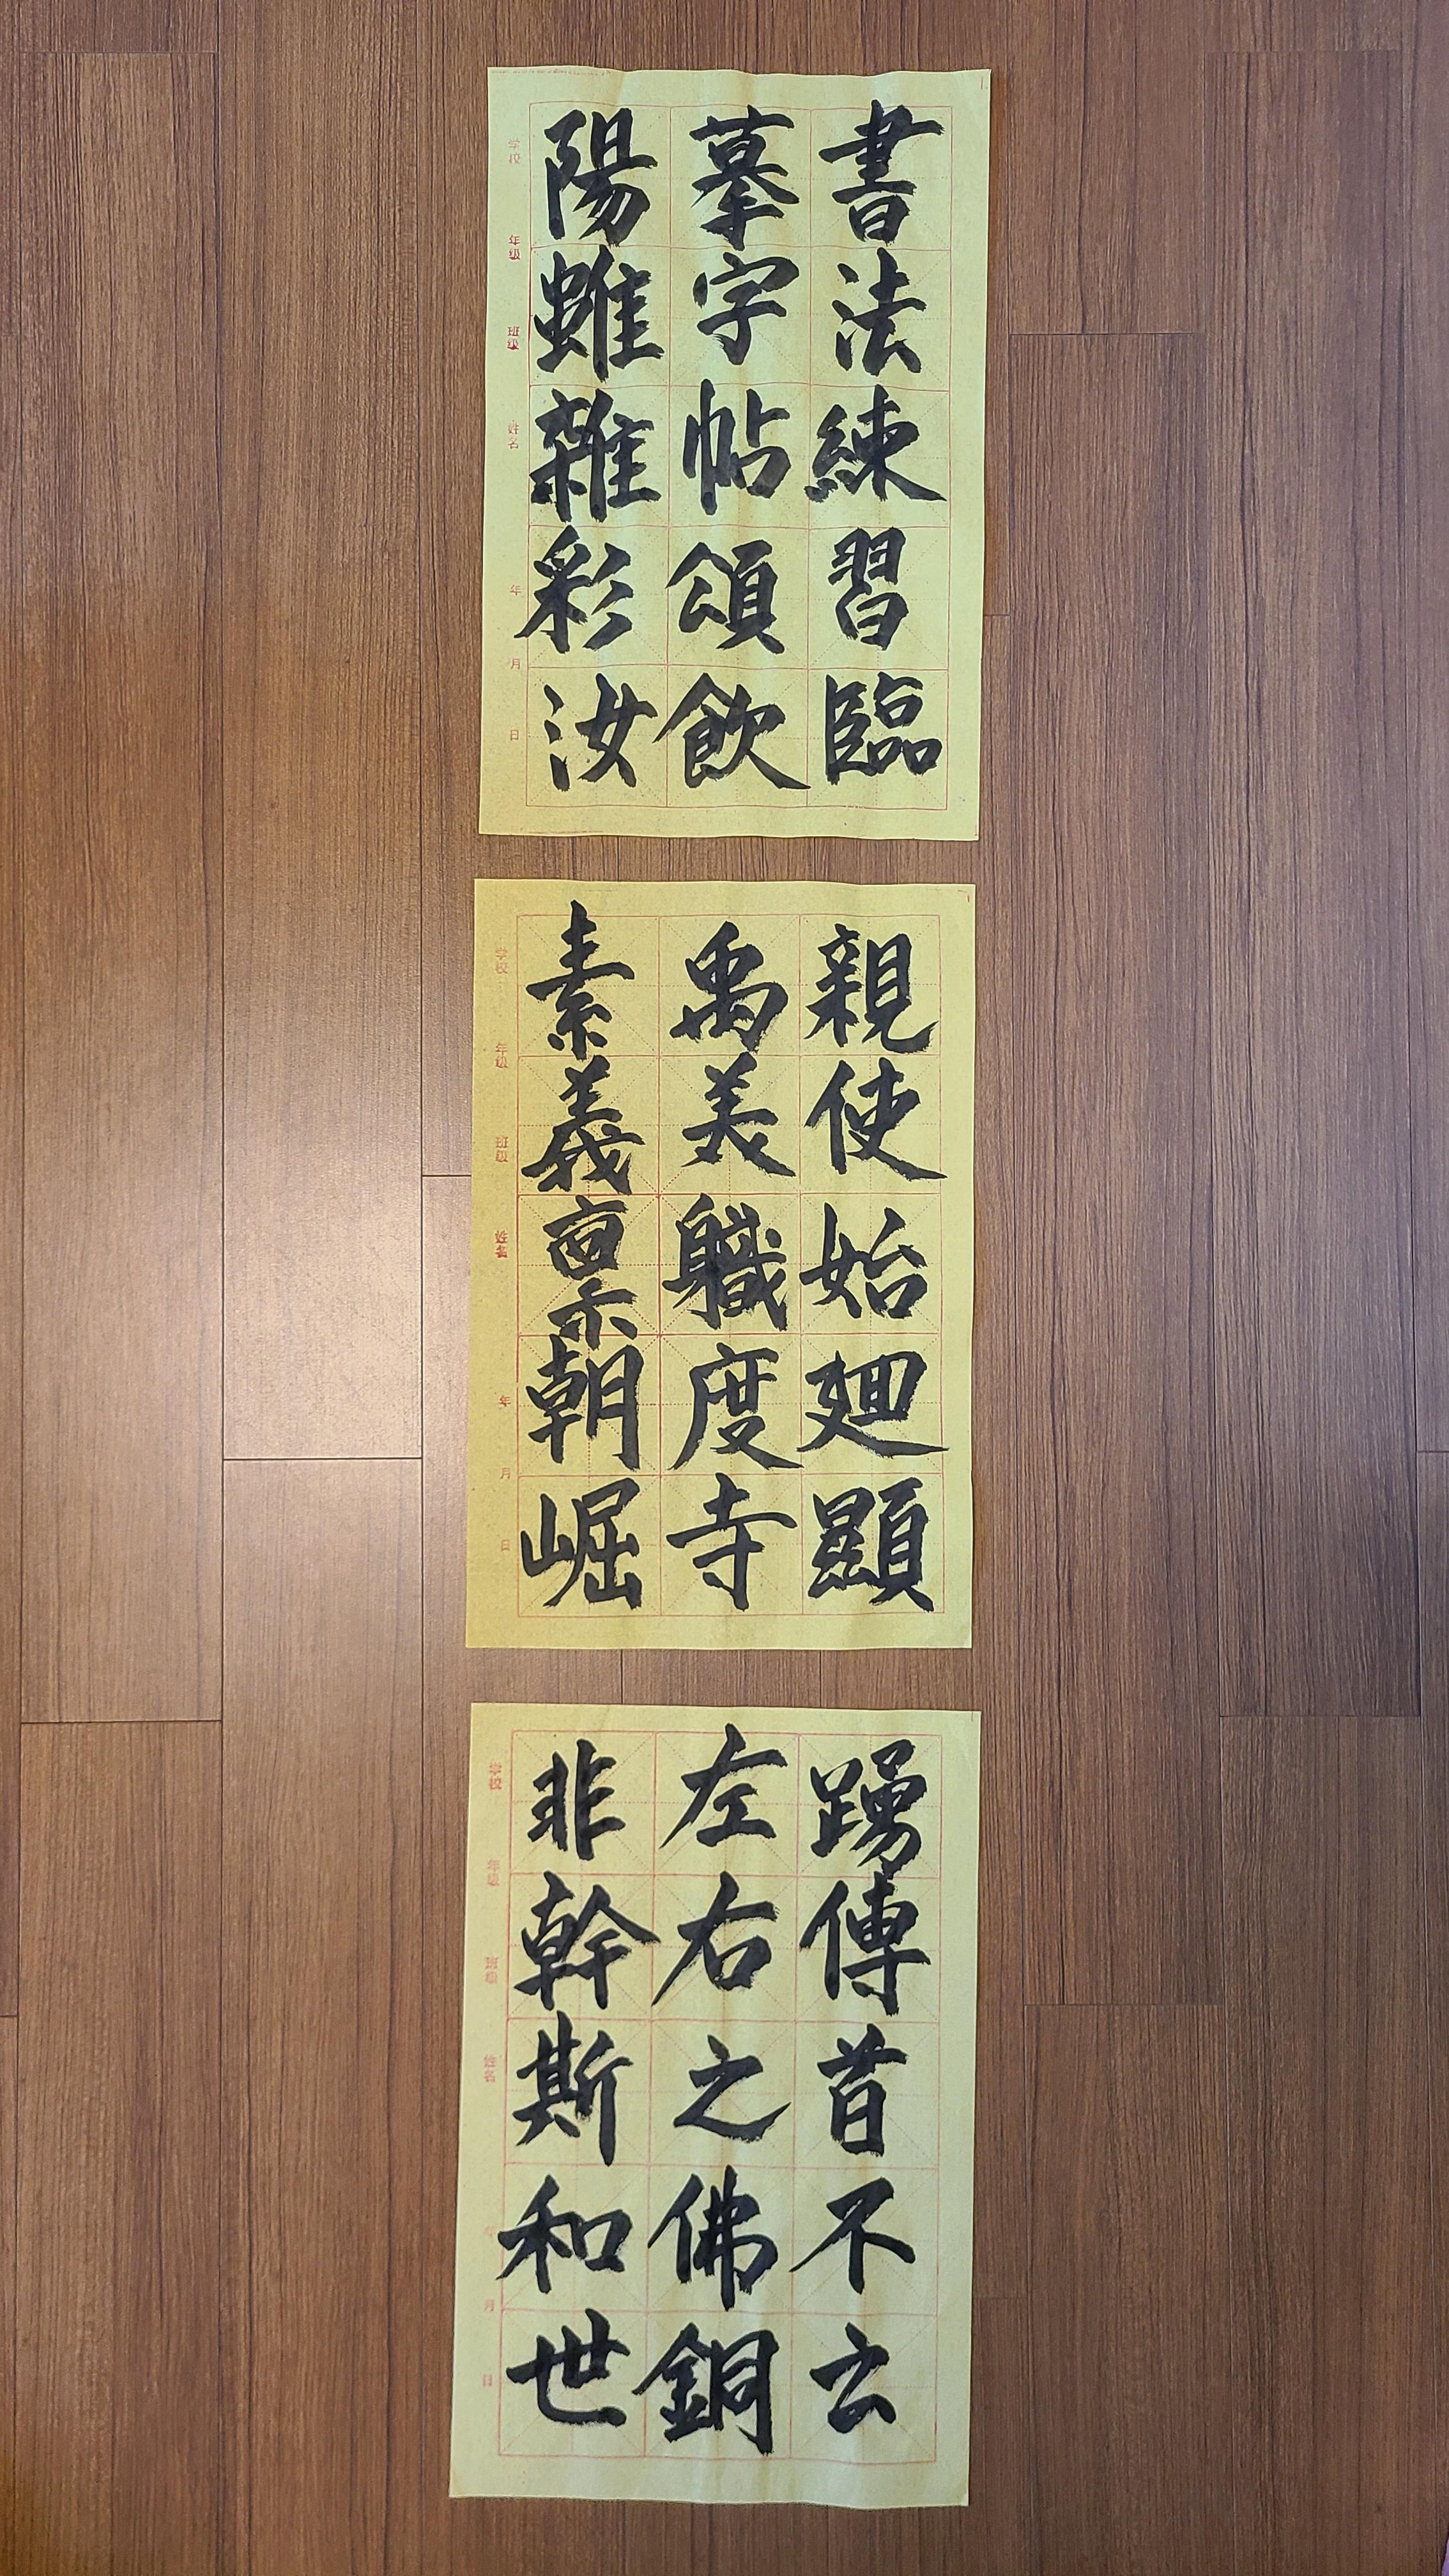 書法練習臨
摹字帖頌飲
陽雖雜彩汝
学校 年级 班级 姓名 年 月 日
親使始廻顯
禹美軄度寺
素義禀朝崛
学校 年级 班级 姓名 年 月 日
踴傳昔不云
左右之佛銅
非幹斯和世
学校 年级 班级 姓名 年 月 日